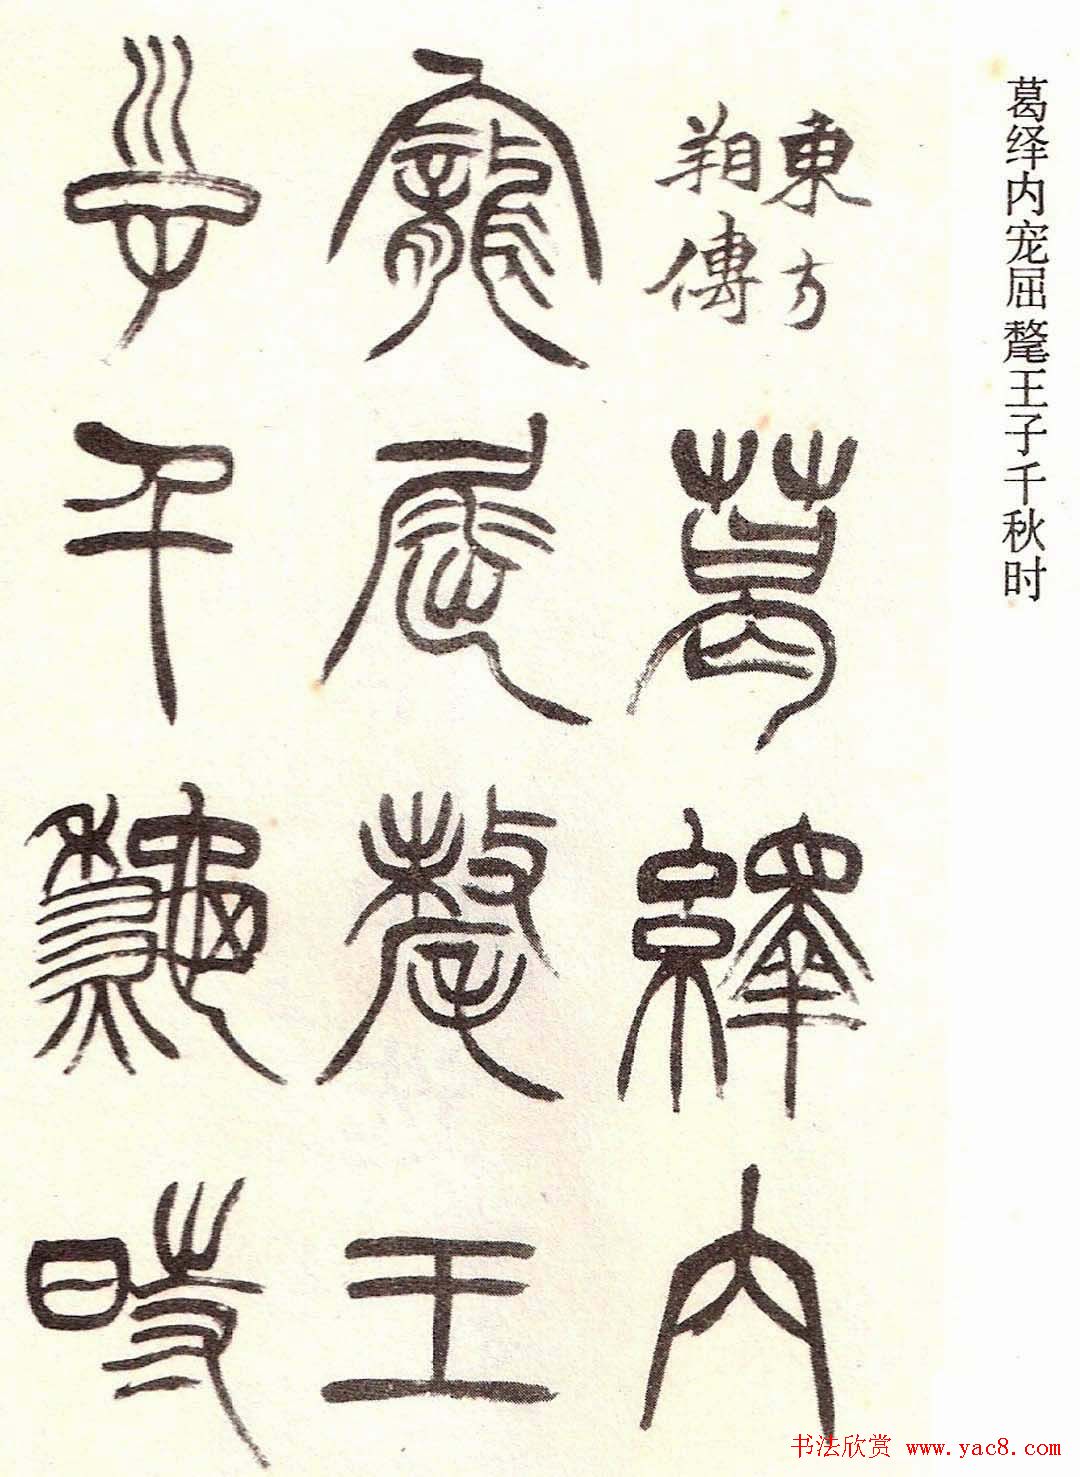 葛绎内宠屈氂王子千秋时
東方
朔傳
葛繹內
寵屈氂王
子千秋時
书法欣赏 www.yac8.com